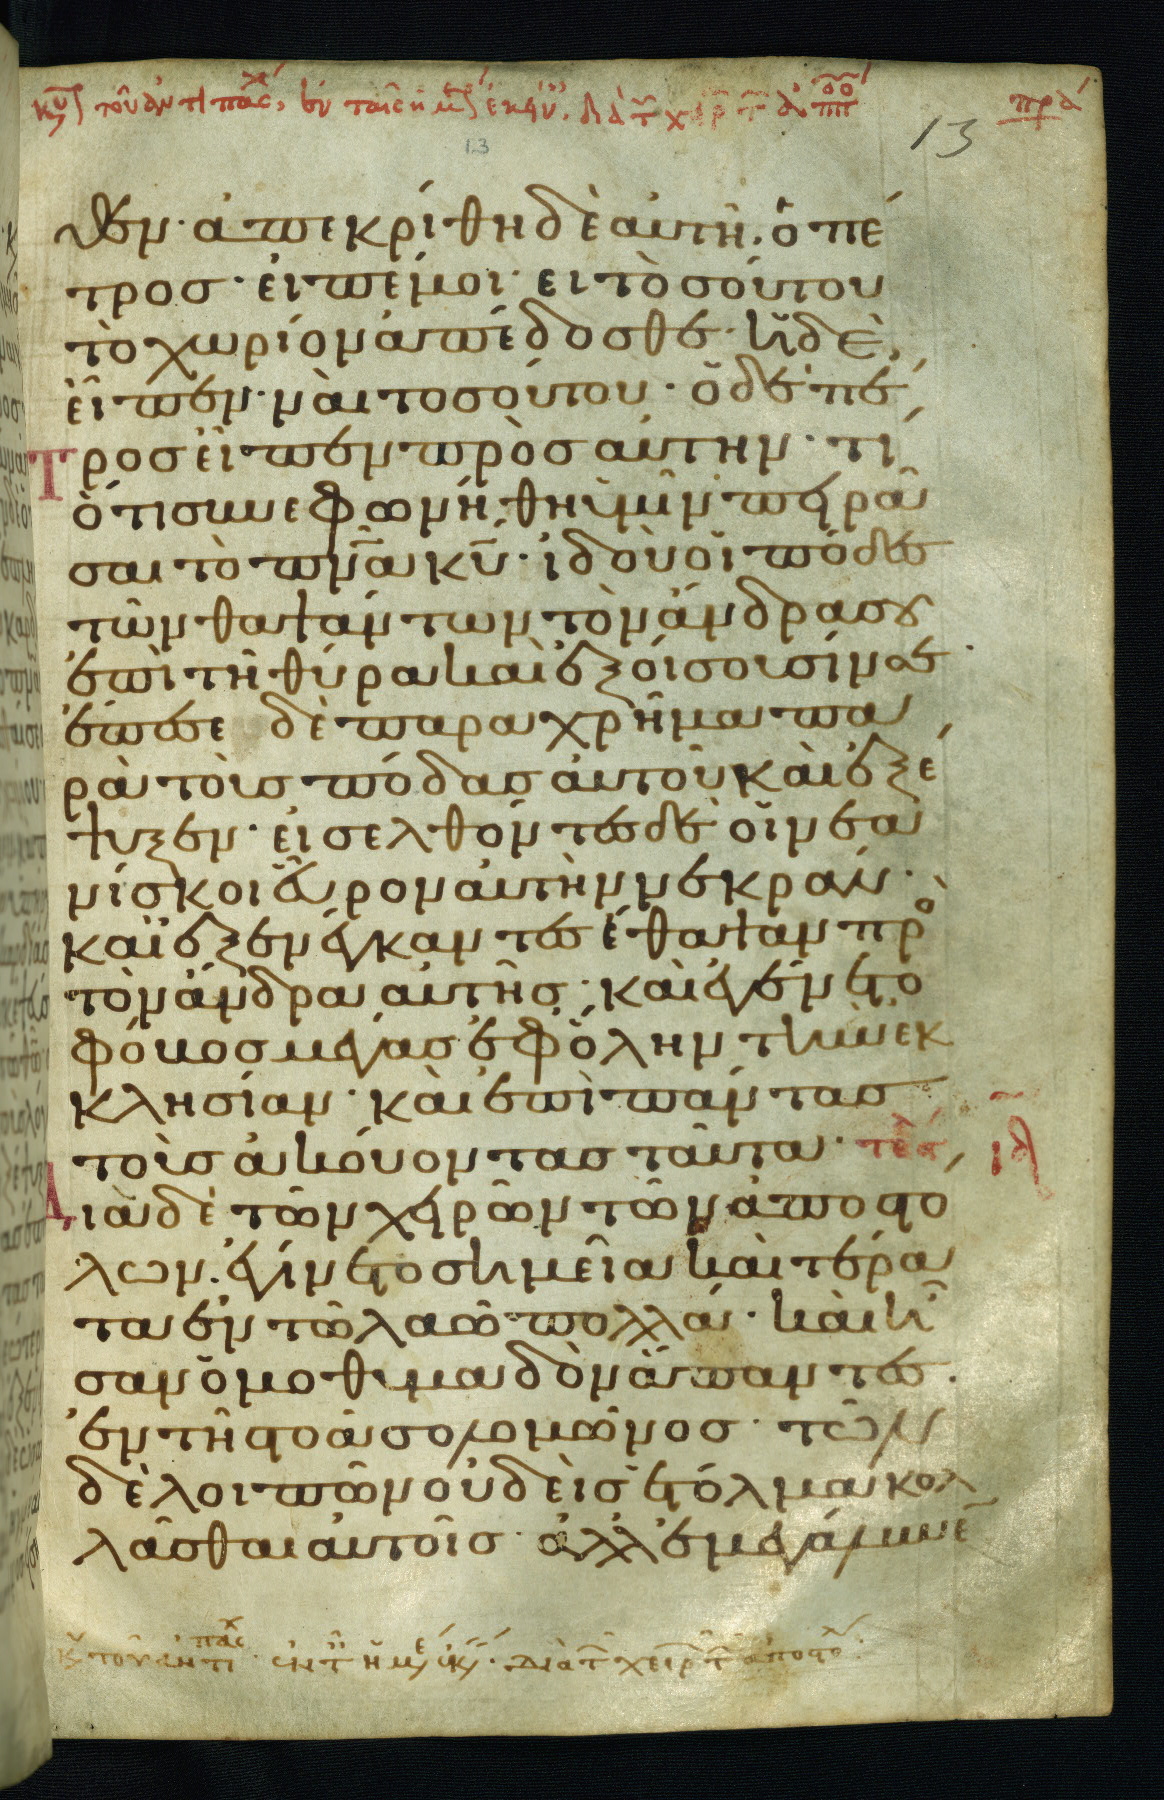 κυ τοῦ ἀντιπασχ, ἐν ταῖς ἡμ ἐκεί. διὰ τ χειρ τ ἀποστ
πρα
13
13
θεν· ἀπεκρίθη δὲ αὐτῆ· ὁ πέ
τροσ· εἰπέ μοι· ει τὸσούτου
τὸ χωρίον ἀπέδοσθε· ἡ δὲ,
εἶπεν· ναι τοσούτου· ὁ δὲ πέ
τροσ εἶπεν πρὸσ αὐτην· τί
ὁτι συνεφωνήθη ὑμῖν πειρᾶ
σαι τὸ πνα κυ· ἰδοὺ οἱ πόδες
τῶν θαψάντων τὸν ἄνδρα σου
ἐπὶ τῆ θύρα καὶ ἐξοίσουσίν σε·
ἔπεσε δὲ παραχρῆμα πα
ρὰ τοὺσ πόδασ αὐτοῦ καὶ ἐξέ
ψυξεν· εἰσελθόντες δὲ οἱ νεα
νίσκοι εὗρον αὐτὴν νεκράν·
καὶ ἐξενέγκαντες ἔθαψαν πρὸ
τὸν ἄνδρα αὐτῆσ· καὶ ἐγένετο
φόβοσ μέγασ ἐφ' ὅλην τὴν ἐκ
κλησίαν· καὶ ἐπὶ πάντασ
τοὺσ ἀκούοντασ ταῦτα· τελ
ιλ
Διὰ δὲ τῶν χειρῶν τῶν ἀποστο
λων· ἐγίνετο σημεῖα καὶ τέρα
τα ἐν τῶ λαῶ πολλά· καὶ ἦ
σαν ὁμοθυμαδὸν ἅπαντες·
ἐν τῆ στοᾶ σολομῶνοσ· τῶν
δὲ λοιπῶν οὐδεὶσ ἐτόλμα κολ
λᾶσθαι αὐτοῖσ· ἀλλ' ἐμεγάλυνε
κυ τοῦ ἀντιπασχ· ἐν τ ἡμε ἐκ· Διὰ τ χειρ τ ἀποστο